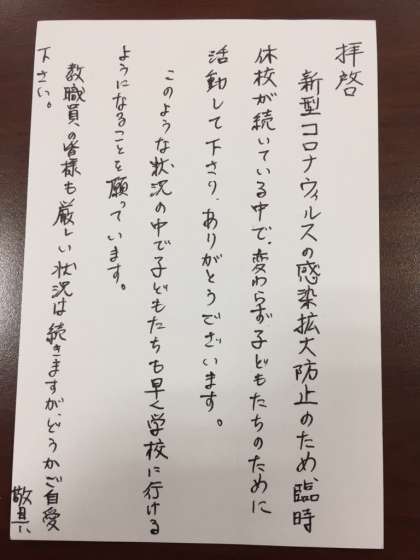 拝啓
新型コロナウィルスの感染拡大防止のため臨時
休校が続いている中で、変わらず子どもたちのために
活動して下さり、ありがとうございます。
このような状況の中で子どもたちも早く学校に行ける
ようになることを願っています。
教職員の皆様も厳しい状況は続きますが、どうかご自愛
下さい。
敬具